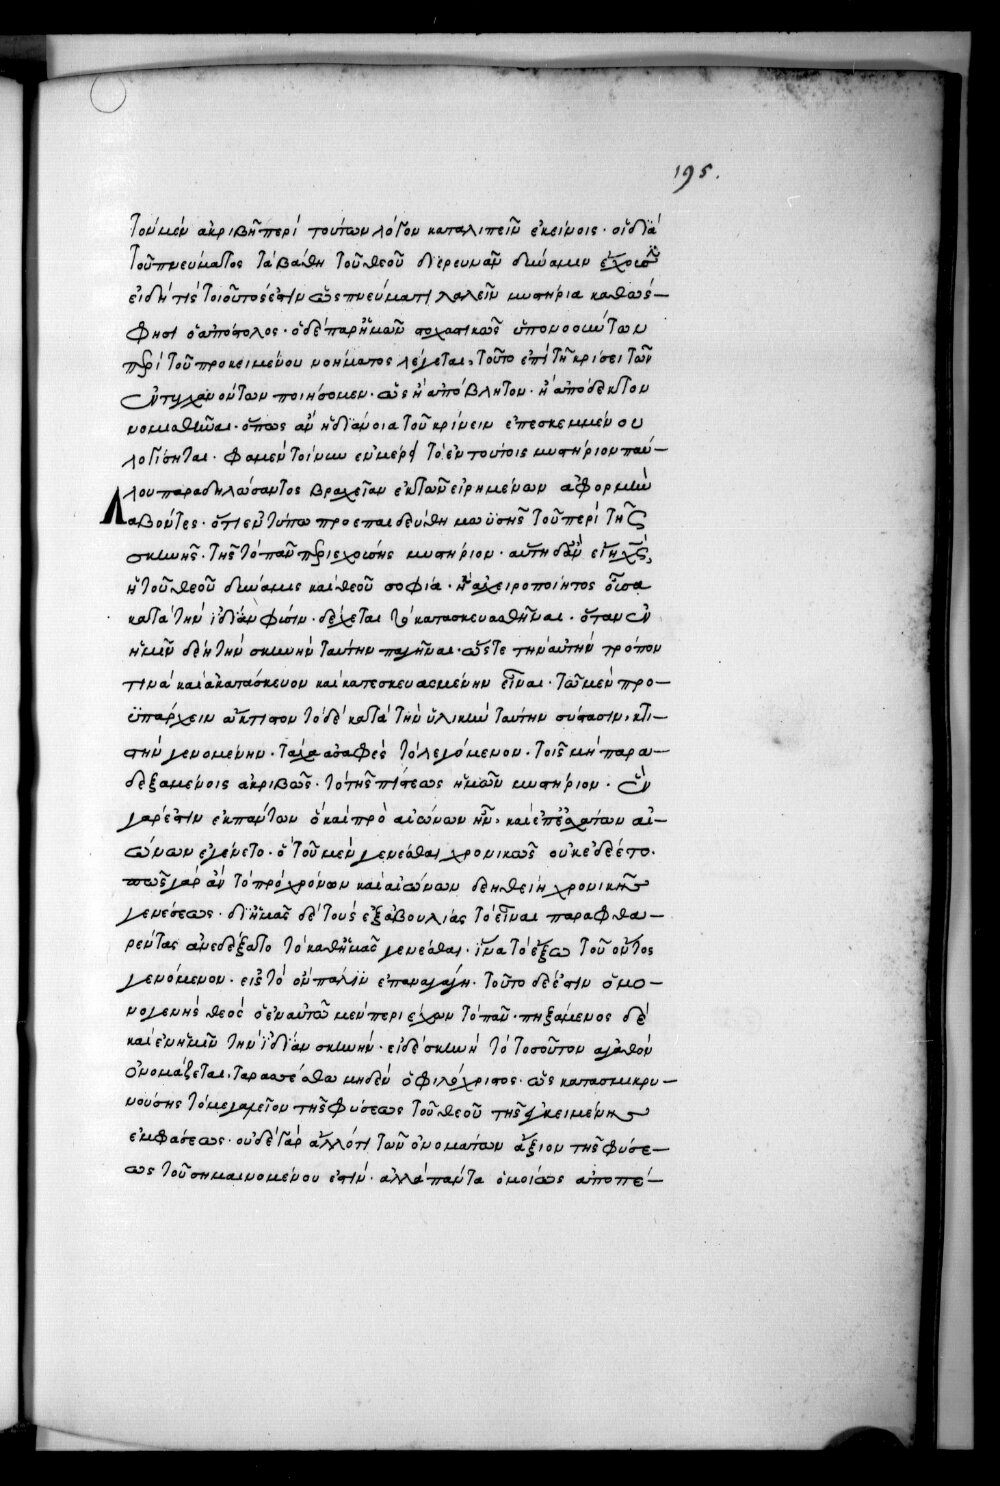 195.
τὸν μὲν ἀκριβῆ περὶ τούτων λόγον καταλιπεῖν ἐκείνοις· οἳ διὰ
τοῦ πνεύματος τὰ βάθη τοῦ θεοῦ διερευνᾶν δύναμιν ἔχουσιν
εἰ δή τις τοιοῦτός ἐστιν ὡς πνεύματι λαλεῖν μυστήρια καθώς
φησι ὁ ἀπόστολος· ὁ δὲ παρ' ἡμῶν στοχαστικῶς ὑπονοούντων
περὶ τοῦ προκειμένου νοήματος λέγεται, τοῦτο ἐπὶ τῇ κρίσει τῶν
ἐντυγχανόντων ποιήσομεν· ὡς ἢ ἀπόβλητον· ἢ ἀπόδεκτον
νομισθῆναι· ὅπως ἂν ἡ διάνοια τοῦ κρίνειν ἐπεσκεμμένου
λογίσηται· φαμὲν τοίνυν ἐν μέρει τὸ ἐν τούτοις μυστήριον παύ-
λου παραδηλώσαντος βραχεῖαν ἐκ τῶν εἰρημένων ἀφορμὴν
Λαβόντες· ὅτι ἐν τύπῳ προεπαιδεύθη μωϋσῆς τοῦ περὶ τῆς
σκηνῆς· τῆς τὸ πᾶν περιεχούσης μυστήριον· αὕτη δ' ἂν εἴη χς,
ἡ τοῦ θεοῦ δύναμις καὶ θεοῦ σοφία· ἣ ἀχειροποίητος οὖσα
κατὰ τὴν ἰδίαν φύσιν· δέχεται τὸ κατασκευασθῆναι· ὅταν ἐν
ἡμῖν δέῃ τὴν σκηνὴν ταύτην παγῆναι· ὥστε τὴν αὐτὴν τρόπον
τινὰ καὶ ἀκατάσκευον καὶ κατεσκευασμένην εἶναι· τῷ μὲν προ-
ϋπάρχειν ἄκτιστον τὸ δὲ κατὰ τὴν ὑλικὴν ταύτην σύστασιν, κτι-
στὴν γενομένην· τάχα ἀσαφὲς τὸ λεγόμενον· τοῖς μὴ παρα-
δεξαμένοις ἀκριβῶς· τὸ τῆς πίστεως ἡμῶν μυστήριον· ἓν
γάρ ἐστιν ἐκ πάντων ὃ καὶ πρὸ αἰώνων ἦν, καὶ ἐπ' ἐσχάτων αἰ-
ώνων ἐγένετο· ὃ τοῦ μὲν γενέσθαι χρονικῶς οὐκ ἐδέετο·
πῶς γὰρ ἂν τὸ πρὸ χρόνων καὶ αἰώνων δεηθείη χρονικῆς
γενέσεως· δι' ἡμᾶς δὲ τοὺς ἐξ ἀβουλίας τὸ εἶναι παραφθα-
ρέντας ἀνεδέξατο τὸ καθ' ἡμᾶς γενέσθαι· ἵνα τὸ ἔξω τοῦ ὄντος
γενόμενον· εἰς τὸ ὂν πάλιν ἐπαναγάγῃ· τοῦτο δέ ἐστιν ὁ μο-
νογενὴς θεὸς ὁ ἐν αὐτῷ μὲν περιέχων τὸ πᾶν· πηξάμενος δὲ
καὶ ἐν ἡμῖν τὴν ἰδίαν σκηνήν· εἰ δὲ σκηνὴ τὸ τοσοῦτον ἀγαθὸν
ὀνομάζεται, ταρασσέσθω μηδὲν ὁ φιλόχριστος· ὡς κατασμικρυ-
νούσης τὸ μεγαλεῖον τῆς φύσεως τοῦ θεοῦ τῆς ἐγκειμένης
ἐμφάσεως· οὐδὲ γὰρ ἄλλό τι τῶν ὀνομάτων ἄξιον τῆς φύσε-
ως τοῦ σημαινομένου ἐστίν· ἀλλὰ πάντα ὁμοίως ἀποπέ-